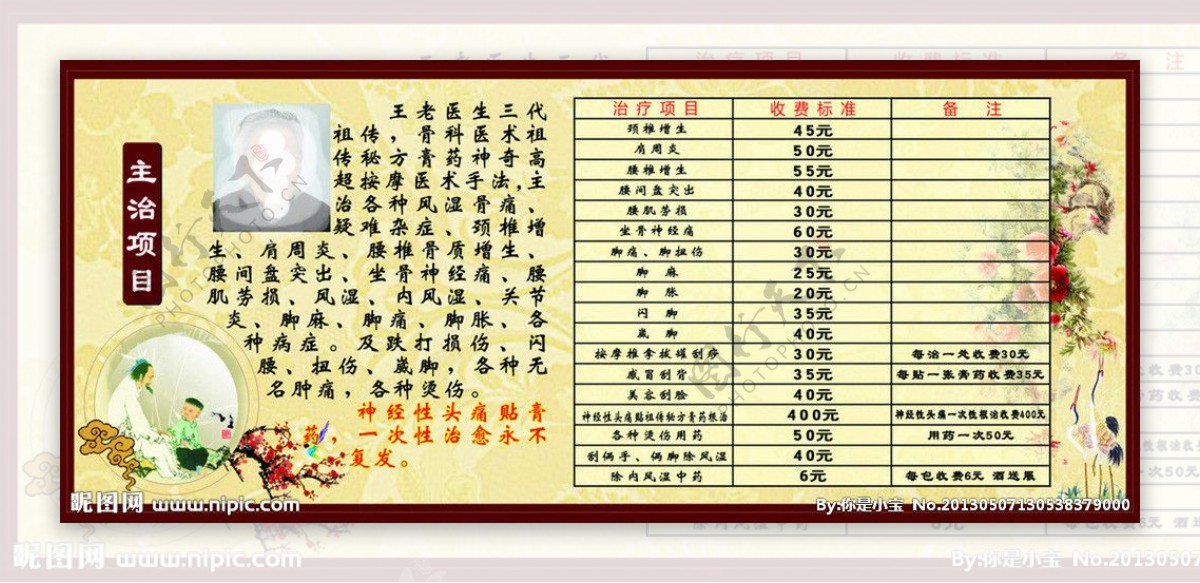 主治项目
王老医生三代
祖传，骨科医术祖
传秘方膏药神奇高
超按摩医术手法,主
治各种风湿骨痛、
疑难杂症、颈椎增
生、肩周炎、腰椎骨质增生、
腰间盘突出、坐骨神经痛、腰
肌劳损、风湿、内风湿、关节
炎、脚麻、脚痛、脚胀、各
种病症。及跌打损伤、闪
腰、扭伤、崴脚，各种无
名肿痛，各种烫伤。
神经性头痛贴膏
药，一次性治愈永不
复发。
治疗项目 收费标准 备 注
颈椎增生 45元
肩周炎 50元
腰椎增生 55元
腰间盘突出 40元
腰肌劳损 30元
坐骨神经痛 60元
脚痛、脚扭伤 30元
脚 麻 25元
脚 胀 20元
闪 脚 35元
崴 脚 40元
按摩推拿拔罐刮痧 30元 每治一处收费30元
感冒刮背 35元 每贴一张膏药收费35元
美容刮脸 40元
神经性头痛贴祖传秘方膏药根治 400元 神经性头痛一次性根治收费400元
各种烫伤用药 50元 用药一次50元
刮俩手、俩脚除风湿 40元
除内风湿中药 6元 每包收费6元 酒送服
昵图网 www.nipic.com
By:你是小宝 No.20130507130538379000
昵图网 www.nipic.com
By:你是小宝 No.2013050713